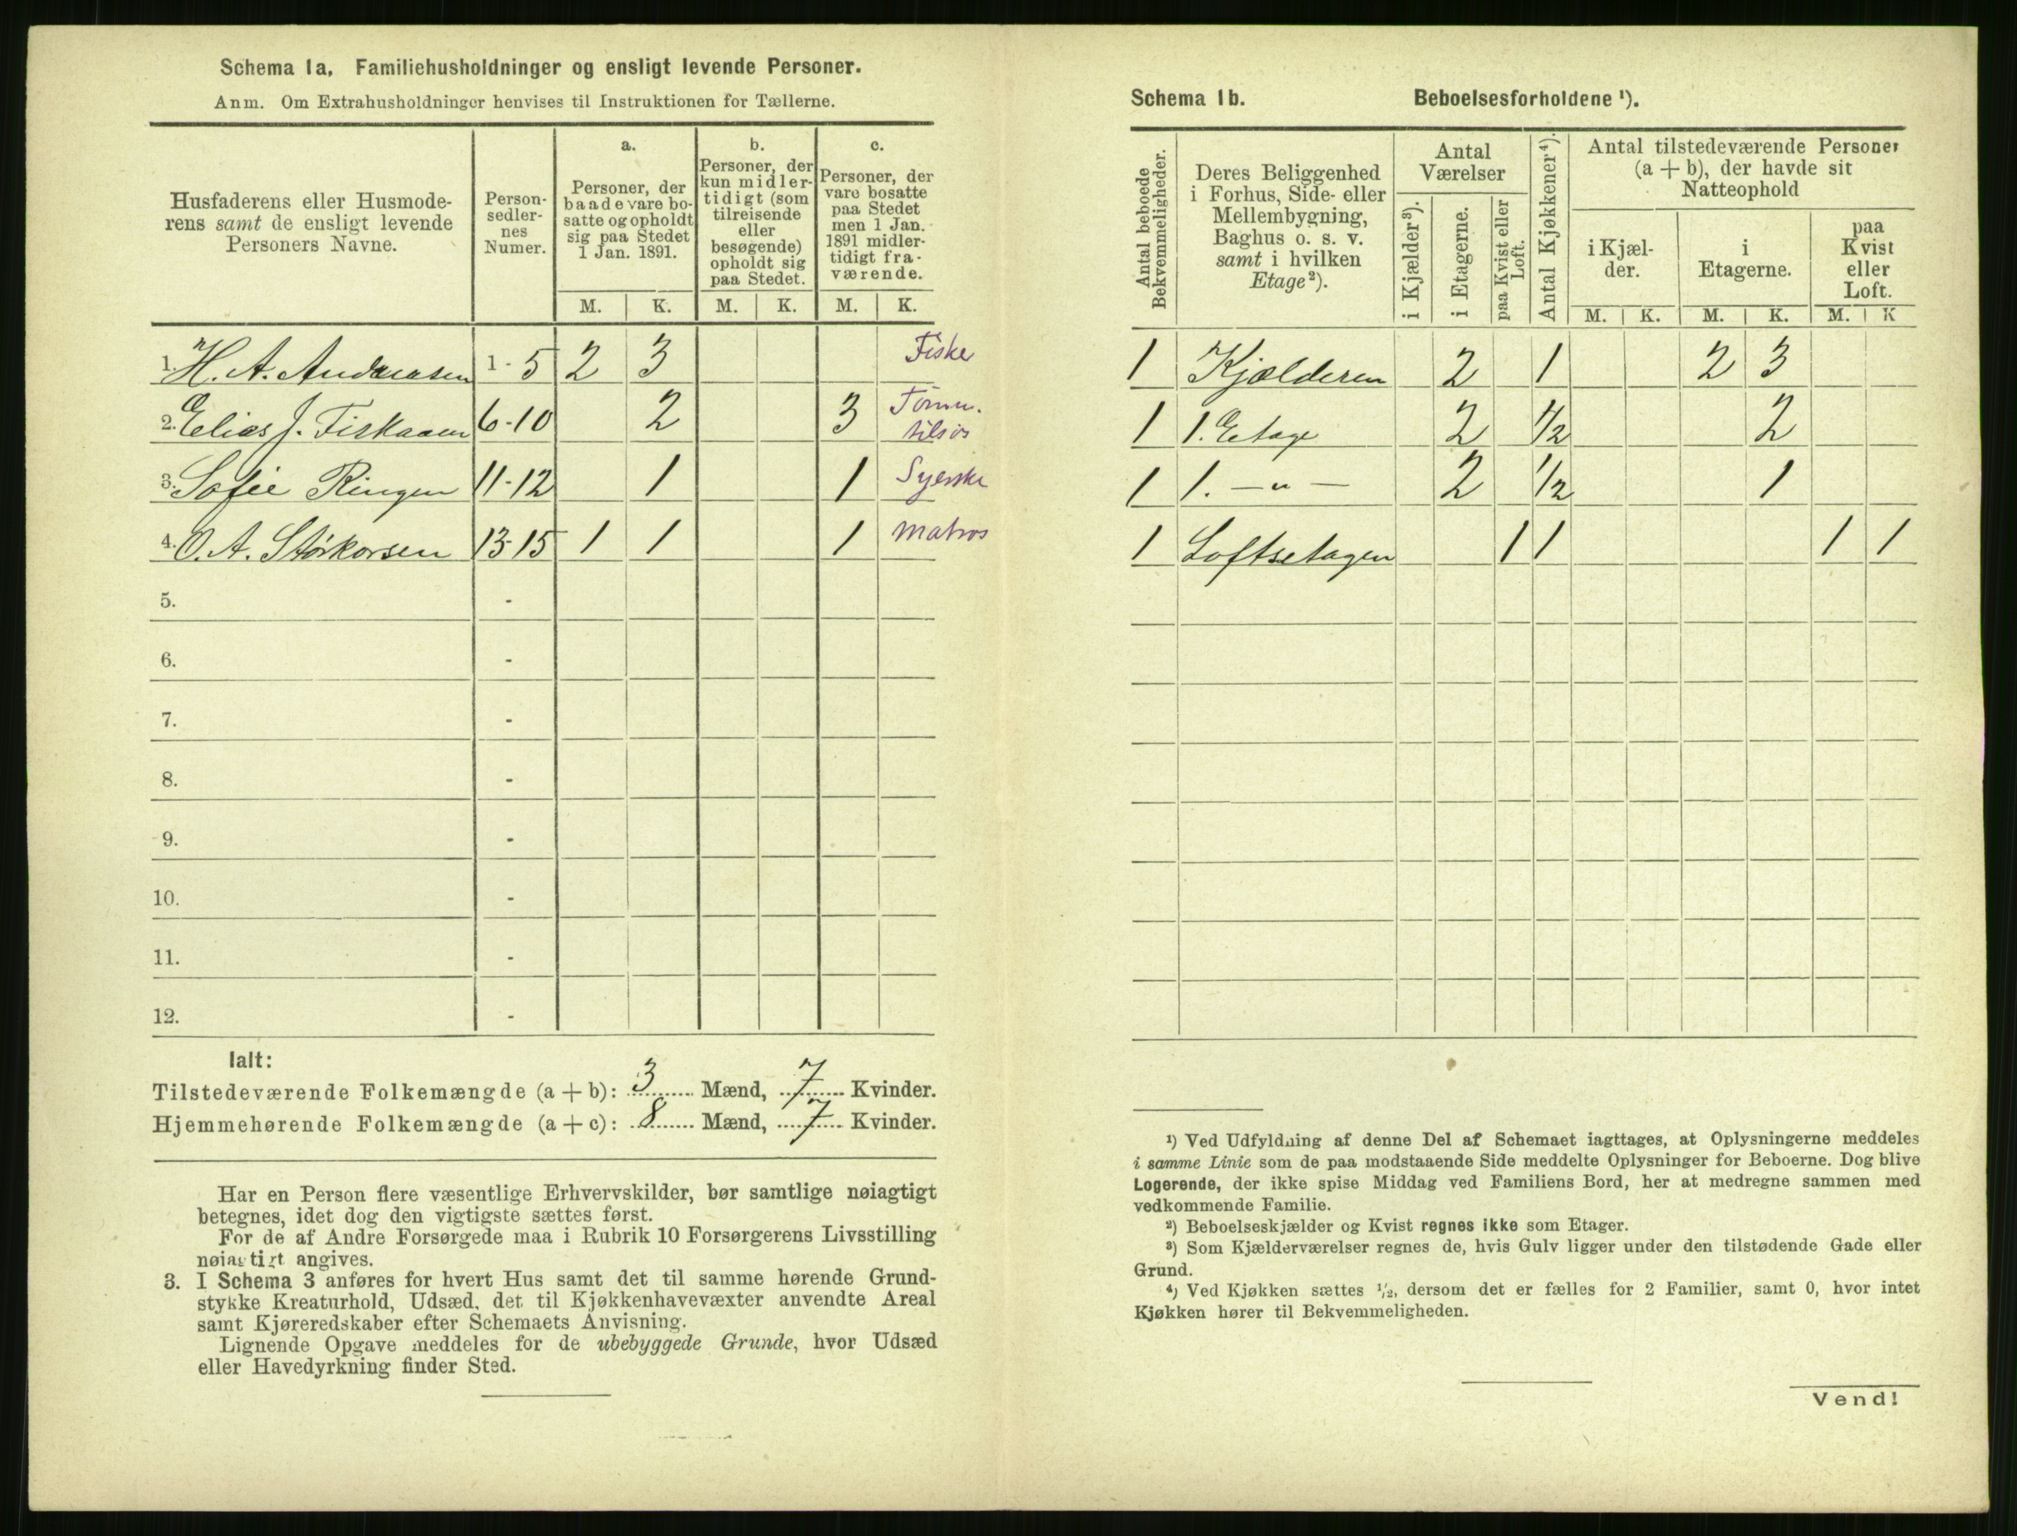 Schema 1a. Familiehusholdninger og ensligt levende Personer.
Anm. Om Extrahusholdninger henvises til Instruktionen for Tællerne.
Husfaderens eller Husmoderens samt de ensligt levende Personers Navne.
Personsedlernes Numer.
a.
Personer, der baade vare bosatte og opholdt sig paa Stedet 1 Jan. 1891.
b.
Personer, der kun midlertidigt (som tilreisende eller besøgende) opholdt sig paa Stedet.
c.
Personer, der vare bosatte paa Stedet men 1 Jan. 1891 midlertidigt fraværende.
M. K. M. K. M. K.
1. H. A. Anderssen 1-5 2 3 Fiske
2. Elias J. Fiskaaen 6-10 2 3 Tömm. tilsös
3. Sofie Ringen 11-12 1 1 Syerske
4. O. A. Störkorsen 13-15 1 1 1 Matros
5. -
6. -
7. -
8. -
9. -
10. -
11. -
12. -
Ialt:
Tilstedeværende Folkemængde (a + b): 3 Mænd, 7 Kvinder.
Hjemmehørende Folkemængde (a + c): 8 Mænd, 7 Kvinder.
Har en Person flere væsentlige Erhvervskilder, bør samtlige nøiagtigt
betegnes, idet dog den vigtigste sættes først.
For de af Andre Forsørgede maa i Rubrik 10 Forsørgerens Livsstilling
nøiagtigt angives.
3. I Schema 3 anføres for hvert Hus samt det til samme hørende Grund-
stykke Kreaturhold, Udsæd, det til Kjøkkenhavevæxter anvendte Areal
samt Kjøreredskaber efter Schemaets Anvisning.
Lignende Opgave meddeles for de ubebyggede Grunde, hvor Udsæd
eller Havedyrkning finder Sted.
Schema 1b. Beboelsesforholdene ¹).
Antal beboede Bekvemmeligheder.
Deres Beliggenhed i Forhus, Side- eller Mellembygning, Baghus o. s. v. samt i hvilken Etage²).
Antal Værelser
i Kjælder³).
i Etagerne.
paa Kvist eller Loft.
Antal Kjøkkener⁴).
Antal tilstedeværende Personer (a + b), der havde sit Natteophold
i Kjælder.
i Etagerne.
paa Kvist eller Loft.
M. K. M. K. M. K
1 Kjælderen 2 1 2 3
1 1. Etage 2 1/2 2
1 1. -„- 2 1/2 1
1 Loftsetagen 1 1 1 1
¹) Ved Udfyldning af denne Del af Schemaet iagttages, at Oplysningerne meddeles
i samme Linie som de paa modstaaende Side meddelte Oplysninger for Beboerne. Dog blive
Logerende, der ikke spise Middag ved Familiens Bord, her at medregne sammen med
vedkommende Familie.
²) Beboelseskjælder og Kvist regnes ikke som Etager.
³) Som Kjælderværelser regnes de, hvis Gulv ligger under den tilstødende Gade eller
Grund.
⁴) Ved Kjøkken sættes 1/2, dersom det er fælles for 2 Familier, samt 0, hvor intet
Kjøkken hører til Bekvemmeligheden.
Vend!